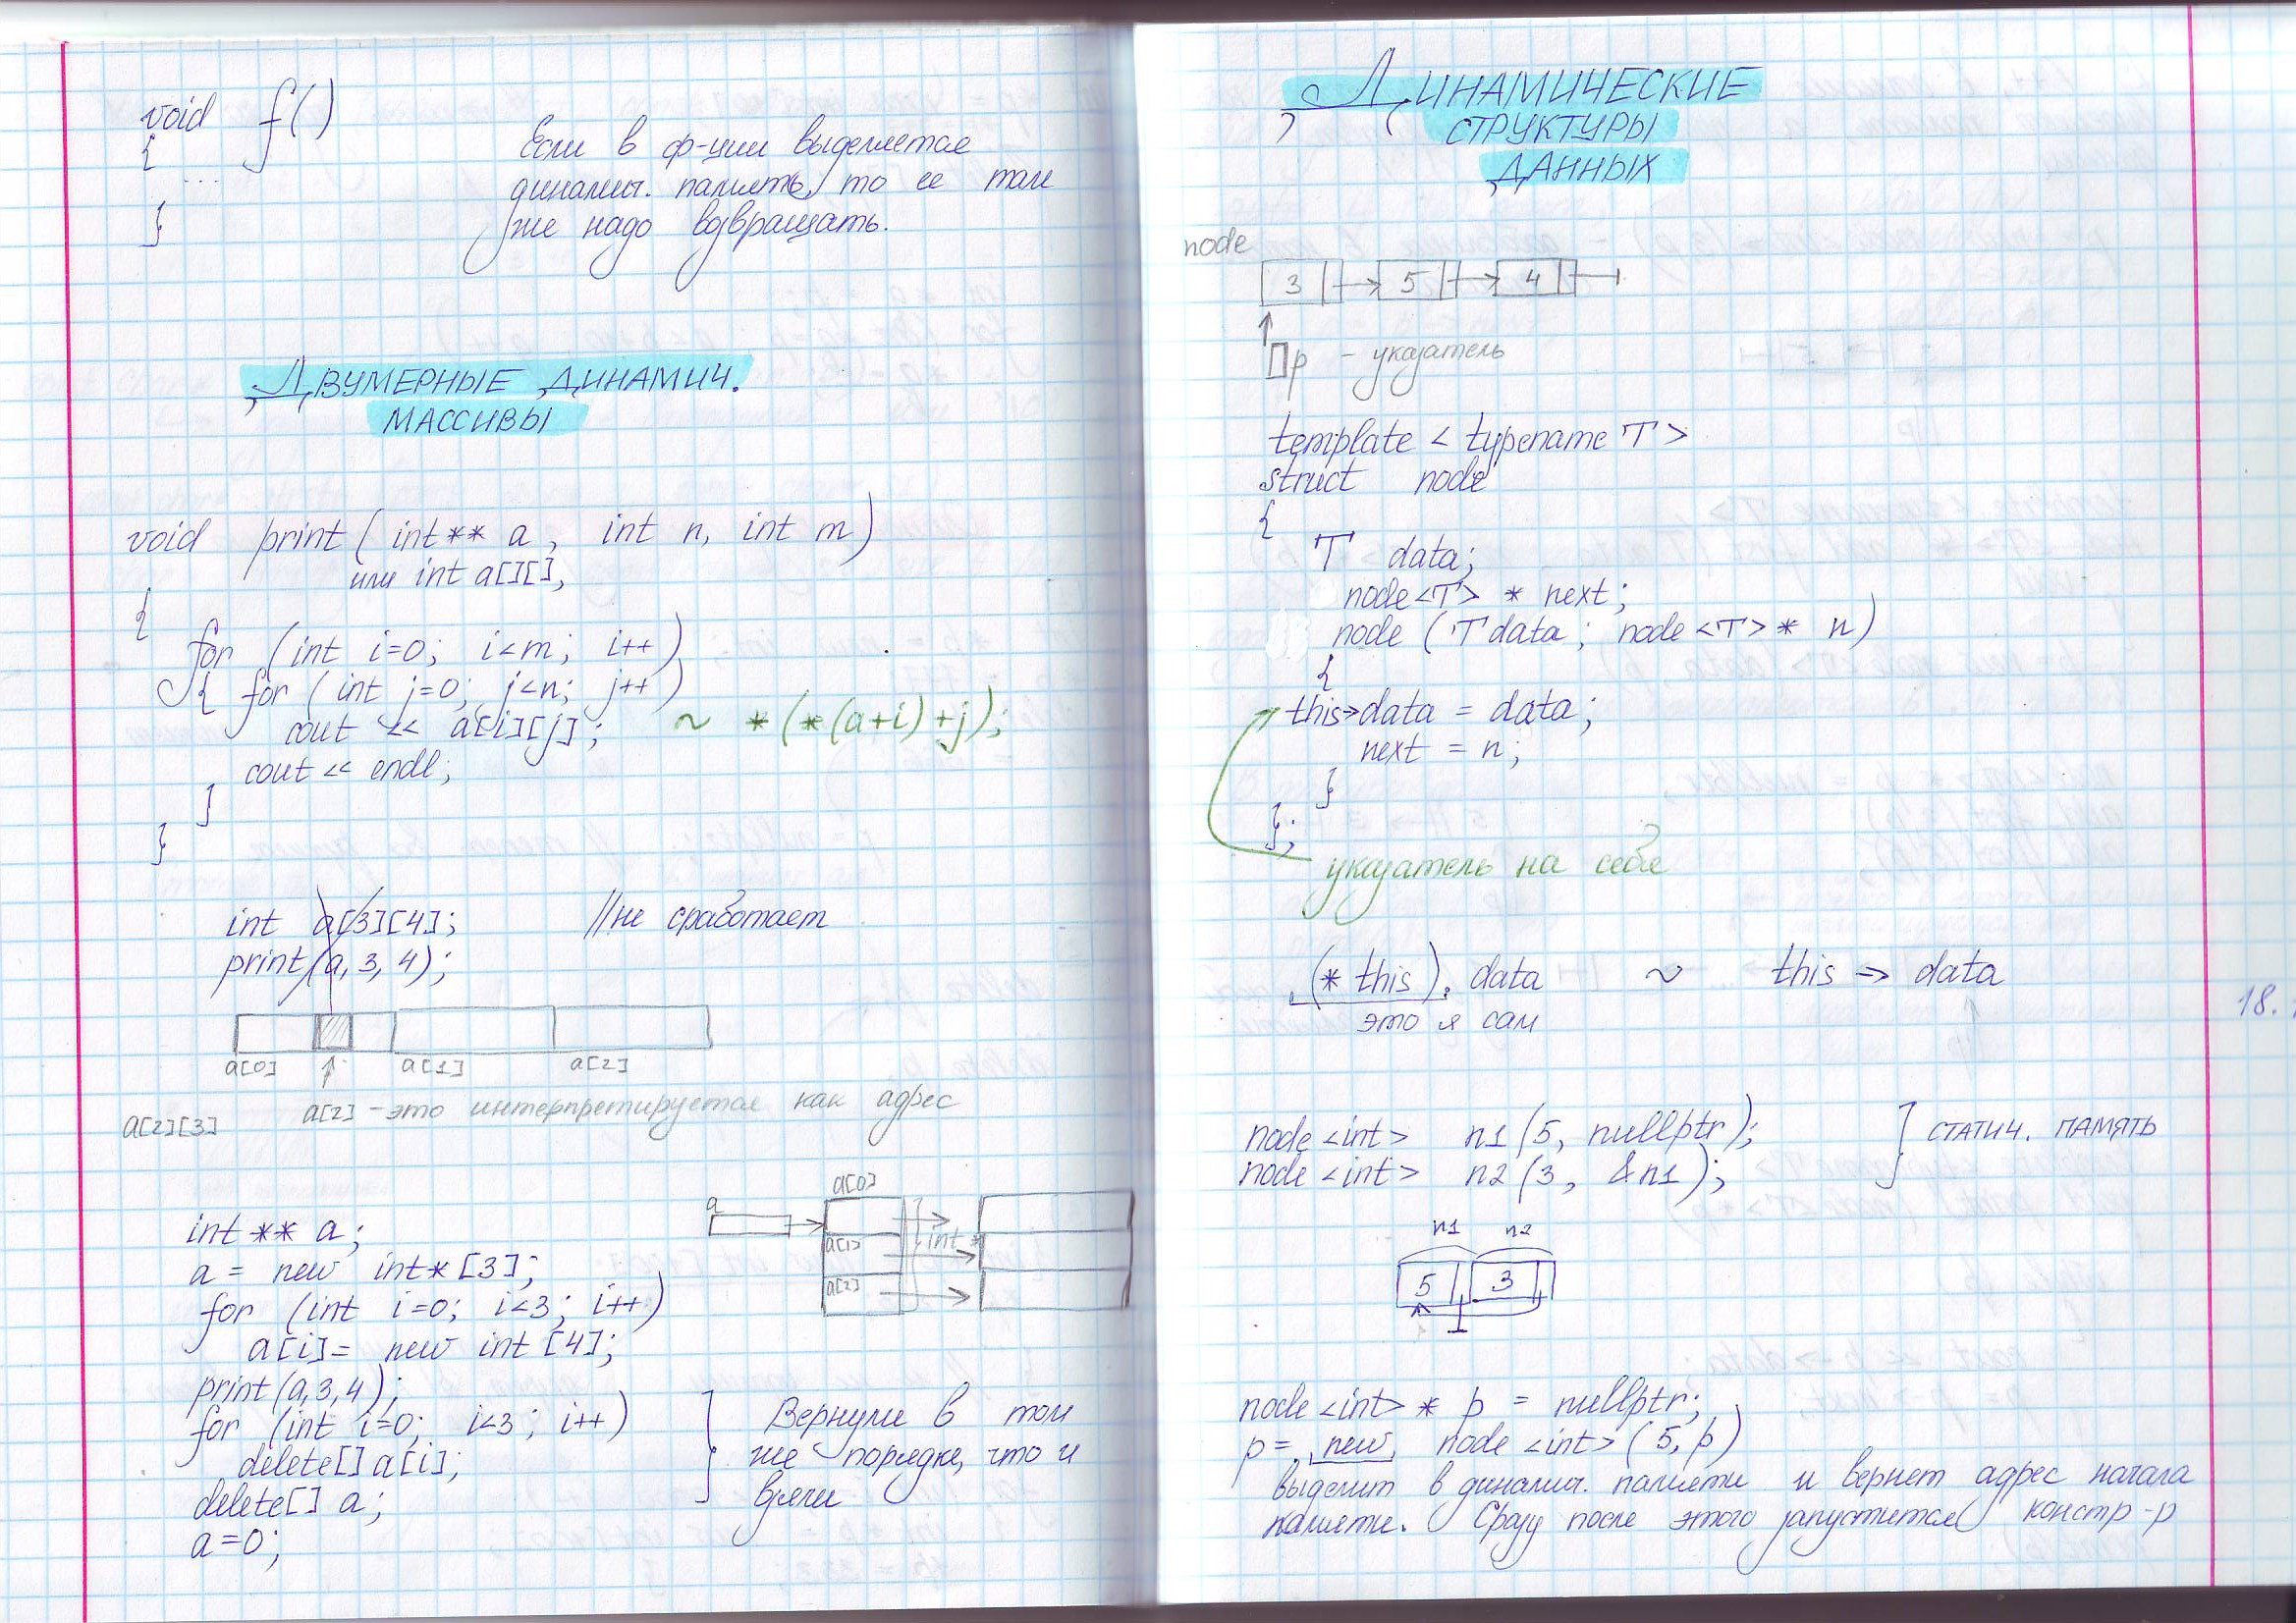 void f()
{
...
}
Если в ф-ции выделяется
динамич. память, то ее там
же надо возвращать.
ДВУМЕРНЫЕ ДИНАМИЧ.
МАССИВЫ
void print( int** a, int n, int m)
или int a[][],
{
for (int i=0; i<m; i++)
{ for (int j=0; j<n; j++)
cout << a[i][j]; ~ *(*(a+i)+j);
cout << endl;
}
}
int a[3][4]; //не сработает
print(a, 3, 4);
a[0] a[1] a[2]
a[2] - это интерпретируется как адрес
a[2][3]
int ** a;
a = new int*[3];
for (int i=0; i<3; i++)
a[i]= new int [4];
print(a,3,4);
for (int i=0; i<3; i++)
delete[] a[i];
delete[] a;
a=0;
a
a[0]
a[1]
a[2]
int *
Вернули в том
же порядке, что и
взяли
ДИНАМИЧЕСКИЕ
СТРУКТУРЫ
ДАННЫХ
node
3 5 4
p - указатель
template < typename T >
struct node
{
T data;
node<T> * next;
node (T data; node<T>* n)
{
this->data = data;
next = n;
}
};
указатель на себя
(* this). data ~ this -> data
это я сам
18.
node <int> n1(5, nullptr);
node <int> n2(3, &n1);
СТАТИЧ. ПАМЯТЬ
n1 n2
5 3
node <int> * p = nullptr;
p = new node <int> (5, p)
выделит в динамич. памяти и вернет адрес начала
памяти. Сразу после этого запустится констр-р